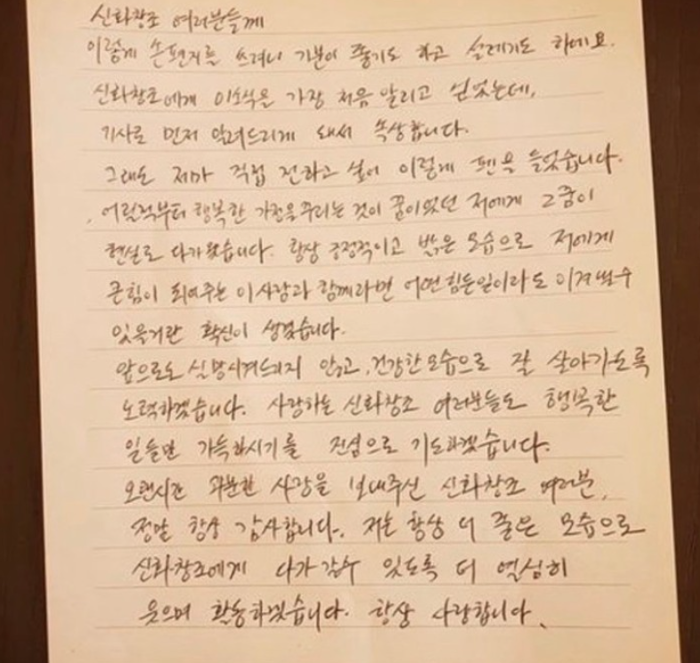 신화창조 여러분들께
이렇게 손편지를 쓰려니 기분이 좋기도 하고 설레기도 하네요.
신화창조에게 이소식은 가장 처음 알리고 싶었는데,
기사로 먼저 알려드리게 돼서 속상합니다.
그래도 제마 직접 전하고 싶어 이렇게 펜을 들었습니다.
어릴적부터 행복한 가정을꾸리는 것이 꿈이었던 저에게 그꿈이
현실로 다가왔습니다. 항상 긍정적이고 밝은 모습으로 저에게
큰힘이 되어주는 이사람과 함께라면 어떤힘든일이라도 이겨낼수
있을거란 확신이 생겼습니다.
앞으로도 실망시켜드리지 않고, 건강한모습으로 잘 살아가도록
노력하겠습니다. 사랑하는 신화창조 여러분들도 행복한
일들만 가득하시기를 진심으로 기도하겠습니다.
오랜시간 과분한 사랑을 보내주신 신화창조 여러분,
정말 항상 감사합니다. 저는 항상 더 좋은 모습으로
신화창조에게 다가갈수 있도록 더 열심히
웃으며 활동하겠습니다. 항상 사랑합니다.